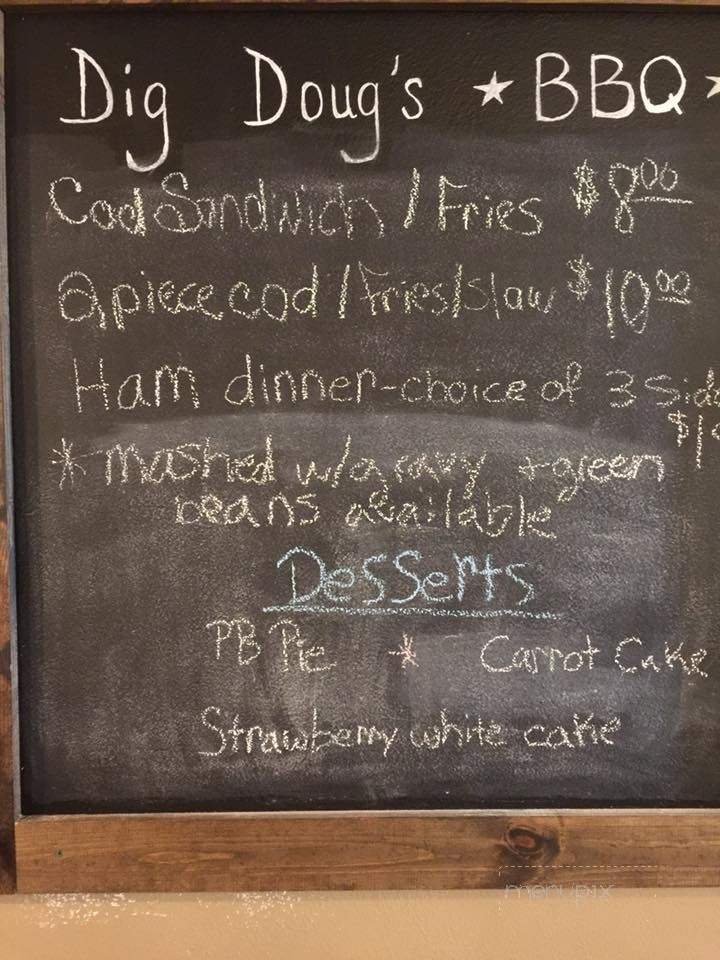 Dig Doug's ★ BBQ
Cod Sandwich / Fries $8.00
2 piece cod / Fries / Slaw $10.00
Ham dinner - choice of 3 Sid
$1
* mashed w/ gravy + green
beans available
Desserts
PB Pie * Carrot Cake
Strawberry white cake
menupix